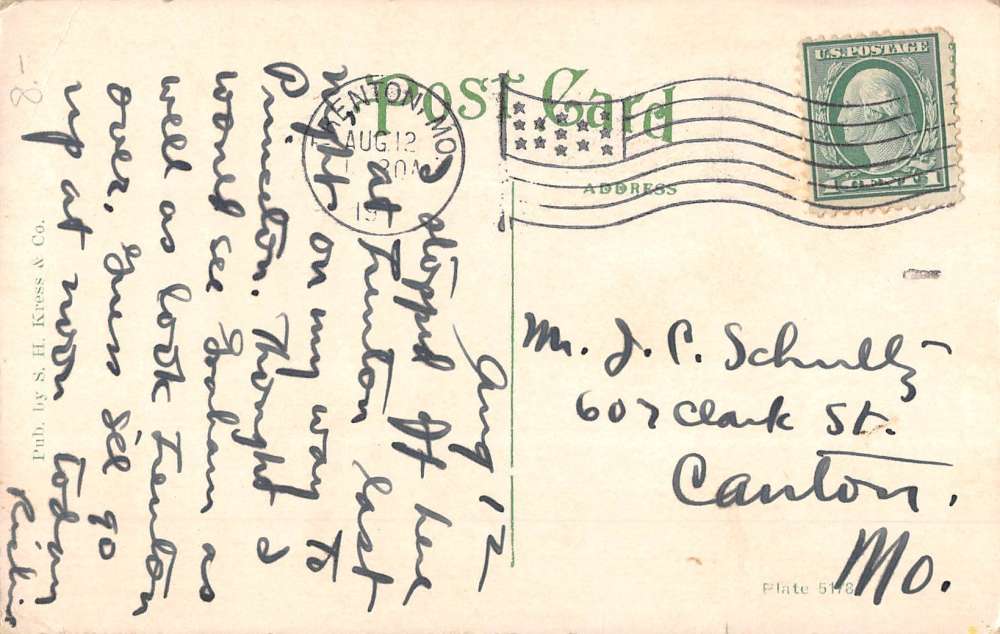 Post Card
ADDRESS
U.S. POSTAGE
TRENTON, MO.
AUG 12
30A
19
Aug '12
I stopped off here
at Trenton last
night on my way to
Princeton. Thought I
would see Graham as
well as look Trenton
over. Guess I'll go
up at noon today
Mr. J. P. Schultz
607 Clark St.
Canton,
Mo.
Pub. by S. H. Kress & Co.
Plate 5178
8.-